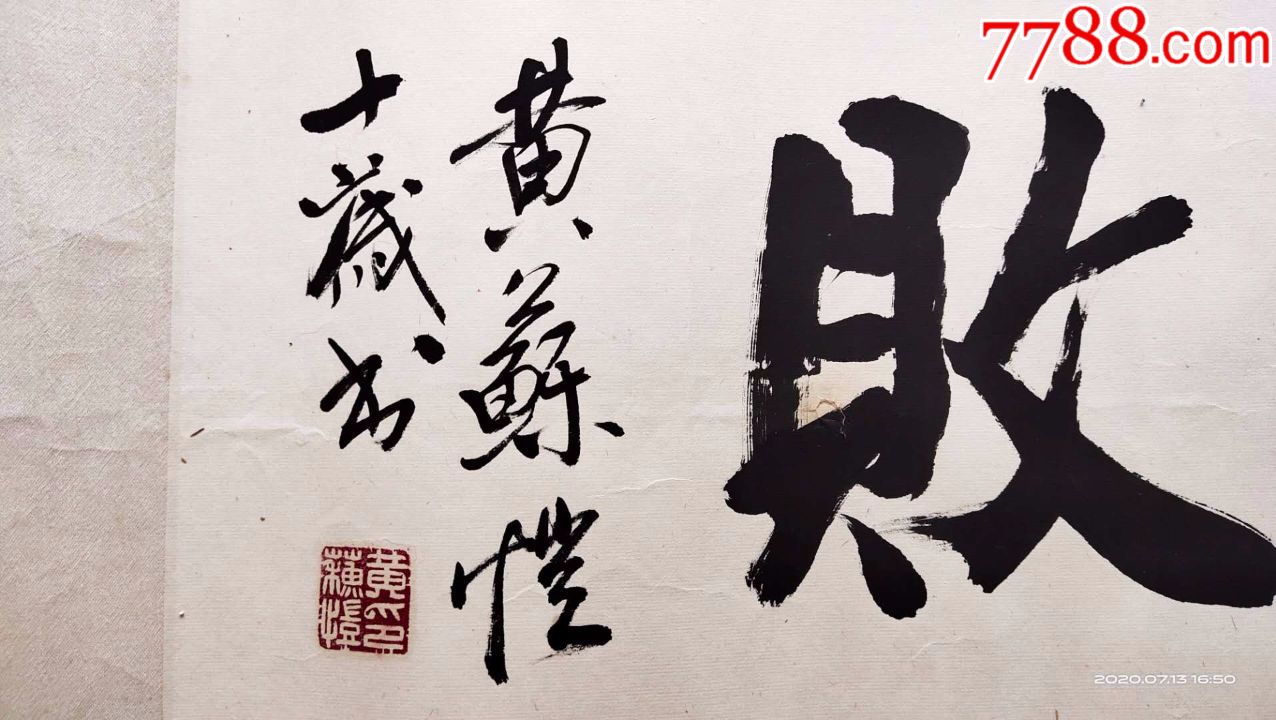 7788.com
敗
黄蘇愷
十歲书
黄印
蘇愷
2020.07.13 16:50